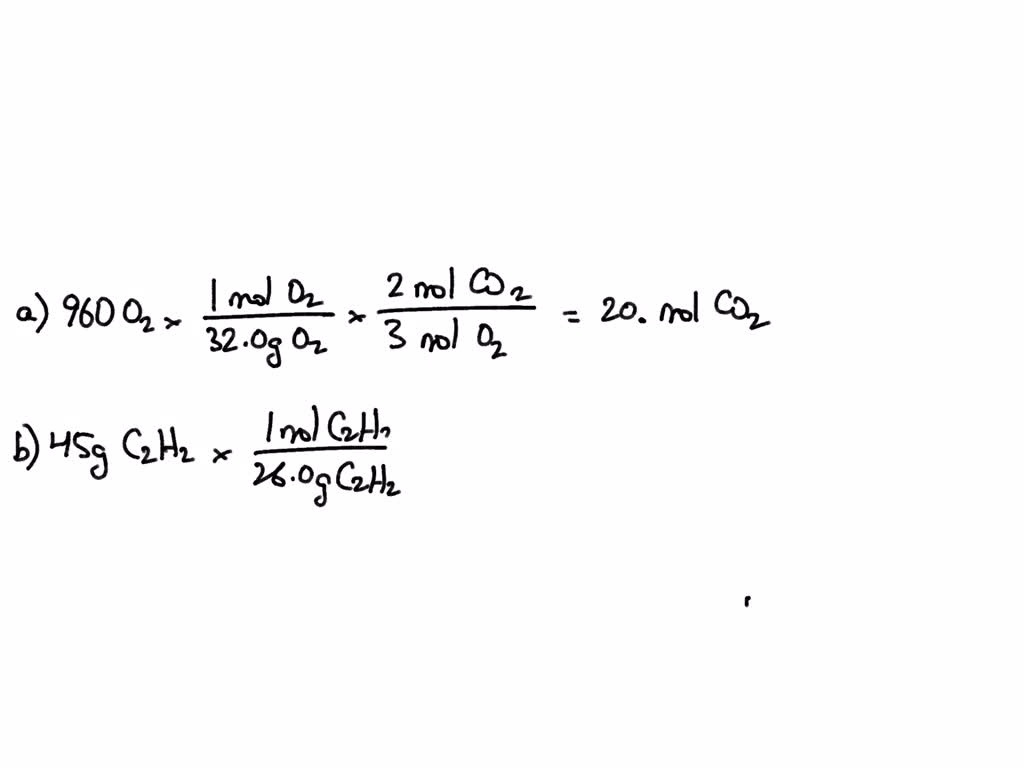 a) 960 O₂ × 1 mol O₂ / 32.0g O₂ × 2 mol CO₂ / 3 mol O₂ = 20. mol CO₂
b) 45g C₂H₂ × 1 mol C₂H₂ / 26.0g C₂H₂